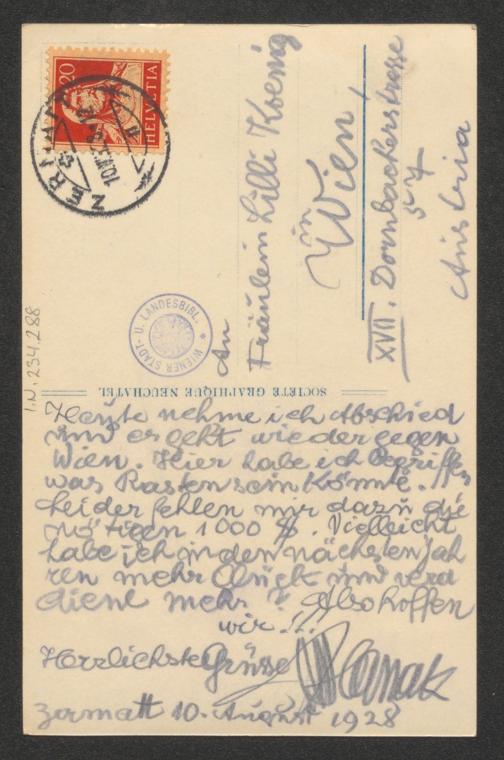 20
HELVETIA
ZERMATT
An
Fräulein Lilli Koenig
in
Wien!
XVII. Dornbacherstrasse
57
Austria
WIENER STADT- U. LANDESBIBL.
I.N. 234.288
SOCIÉTÉ GRAPHIQUE NEUCHATEL
Heute nehme ich Abschied
und es geht wieder gegen
Wien. Hier habe ich begriffen
was Rasten sein könnte.
Leider fehlen mir dazu die
nötigen 1000 $. Vielleicht
habe ich in den nächsten Jah
ren mehr Glück und verd
diene mehr? Also hoffen
wir!!!
Herzlichste Grüsse
Zermatt 10. August 1928